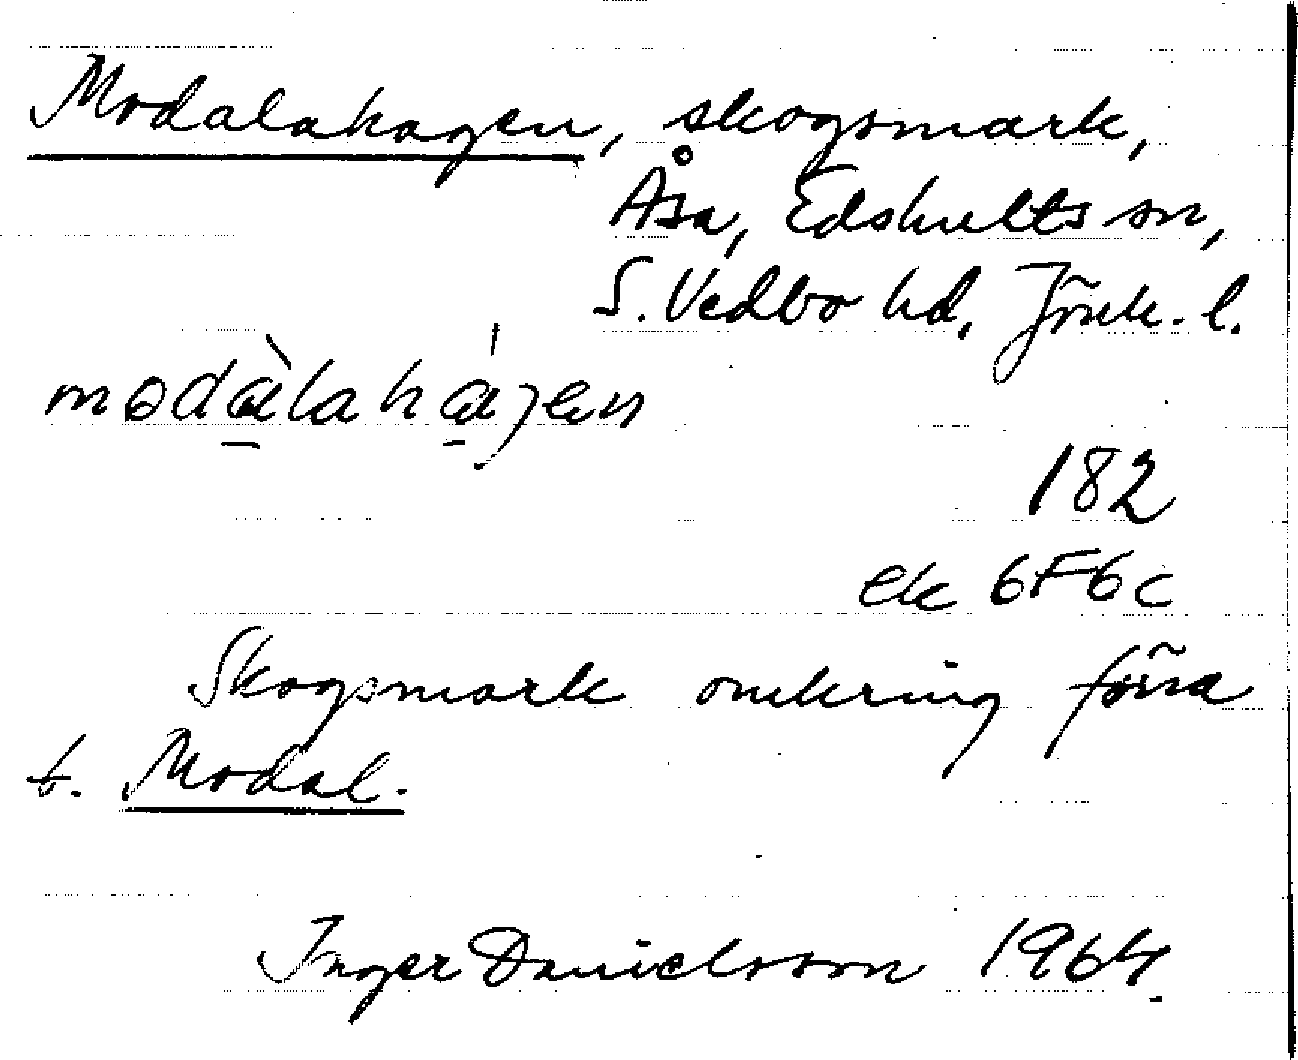 Modalahagen, skogsmark,
Åsa, Edshults sn,
S. Vedbo hd, Jönk. l.
182
ek 6F6c
Skogsmark omkring förra
t. Modal.
Inger Danielsson 1964.